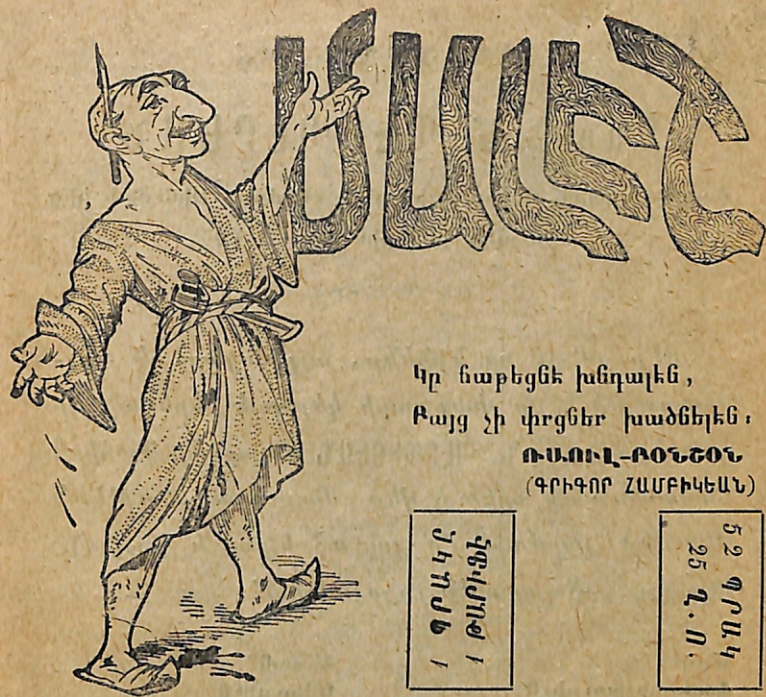 ՄԱԼԷՇ
Կը ճաթեցնէ խնդալէն,
Բայց չի փրցներ խածնելէն։
ՌԱՈՒԼ-ԲՕՆՇՕՆ
(ԳՐԻԳՈՐ ՀԱՄԲԻԿԵԱՆ)
52 ՊՐԱԿ
25 Ղ.Ո.